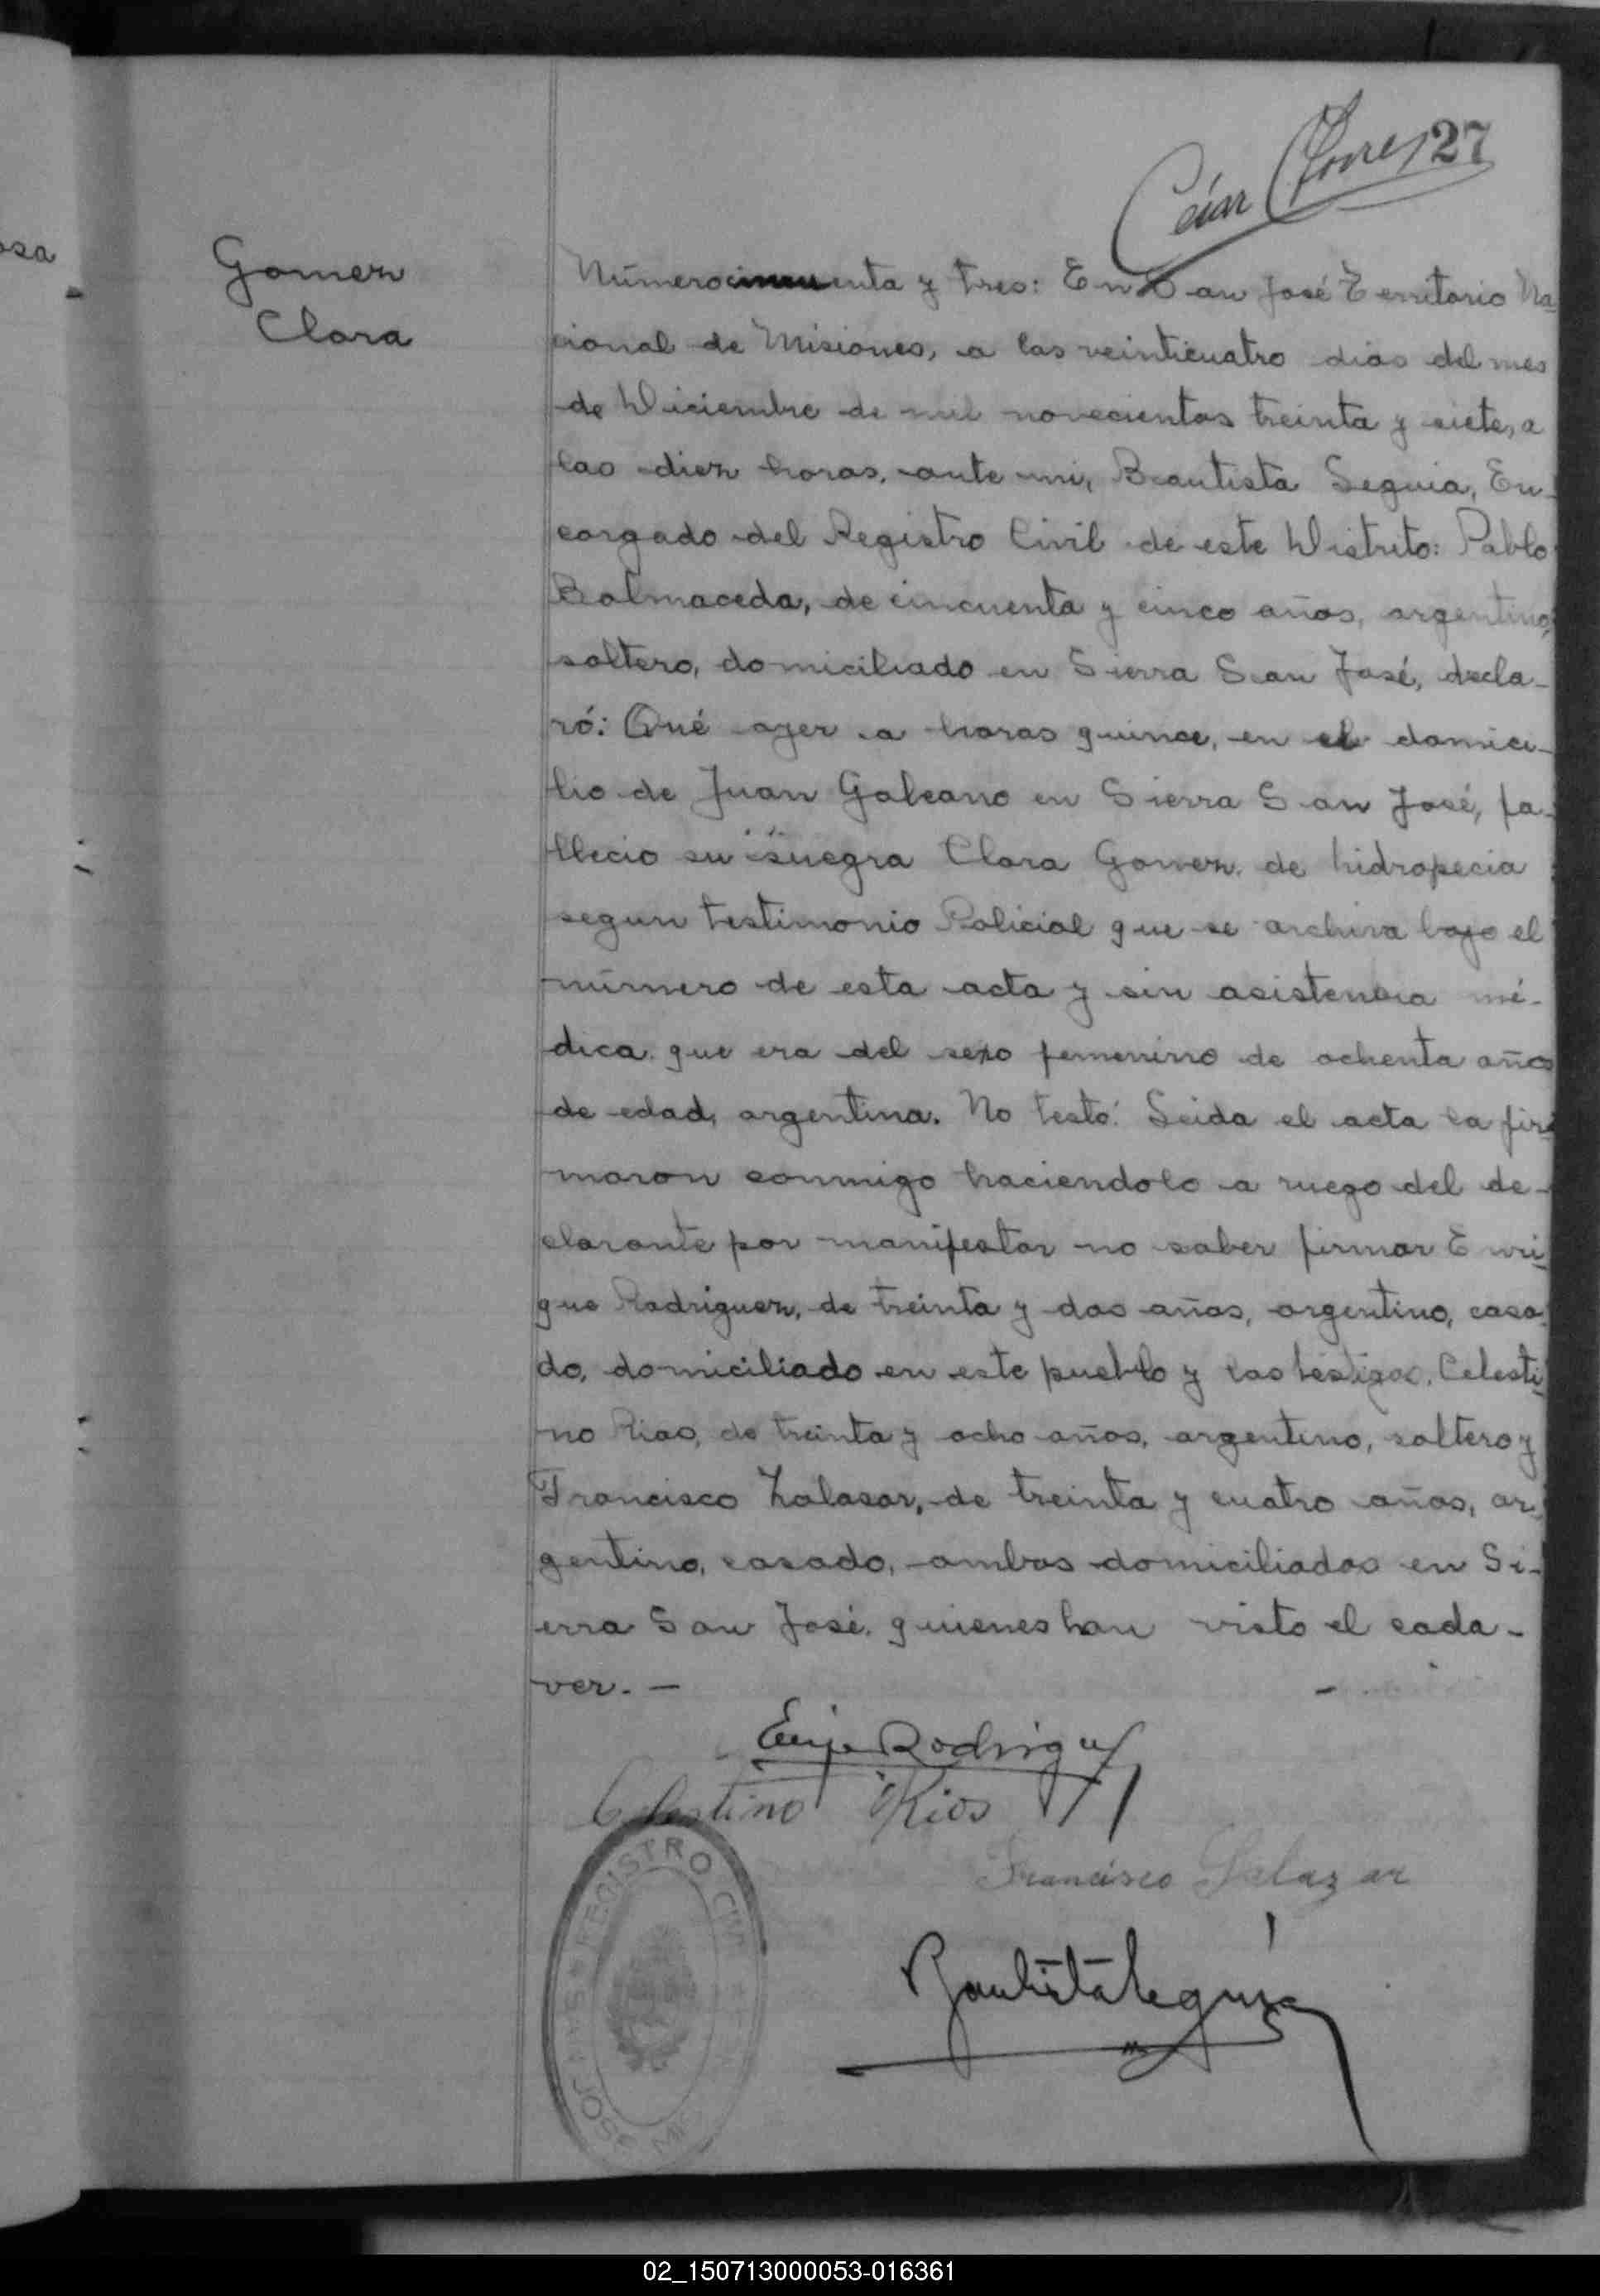 César Flores 27
osa
Gomez
Clara
Número cincuenta y tres: En San José Territorio Na
cional de Misiones, a los veinticuatro dias del mes
de Diciembre de mil novecientos treinta y siete, a
las diez horas, ante mi, Bautista Seguia, En-
cargado del Registro Civil de este Distrito: Pablo
Balmaceda, de cincuenta y cinco años, argentino,
soltero, domiciliado en Sierra San José, decla-
ró: Qué ayer a horas quince, en el domici-
lio de Juan Galeano en Sierra San José, fa-
llecio su suegra Clara Gomez, de hidropecia
segun testimonio Policial que se archiva bajo el
número de esta acta y sin asistencia mé-
dica, que era del sexo femenino de ochenta años
de edad, argentina. No testó. Leida el acta la fir-
maron conmigo haciendolo a ruego del de-
clarante por manifestar no saber firmar Enri-
que Rodriguez, de treinta y dos años, argentino, casa-
do, domiciliado en este pueblo y los testigos, Celesti-
no Rios, de treinta y ocho años, argentino, soltero y
Francisco Zalasar, de treinta y cuatro años, ar-
gentino, casado, ambos domiciliados en Si-
erra San José, quienes han visto el cada-
ver. —
Rodriguez
Celestino Rios
Francisco Salazar
Bautista Seguia
REGISTRO CIVIL
SAN JOSE
02_150713000053-016361